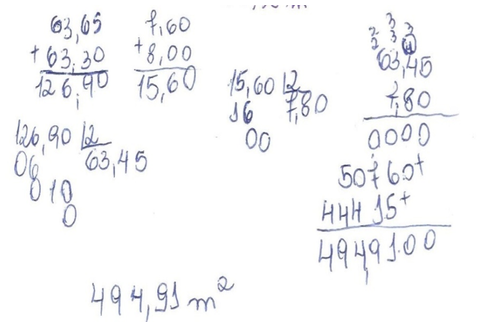 63,65
+63,30
126,90
7,60
+8,00
15,60
15,60 2
16 7,80
00
126,90 2
06 63,45
010
0
3
2 3 3
2 3
63,45
7,80
0000
50760+
44415+
4949100
494,91 m²